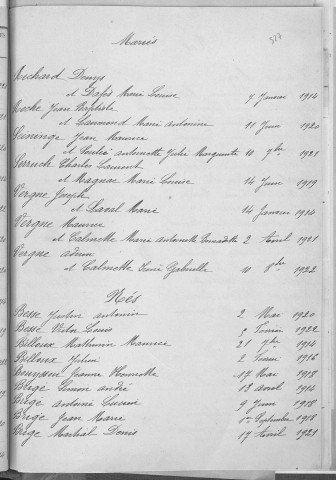 Mariés
327
Richard Denys
et Dafis Marie Louise 7 Janvier 1914
Jean Baptiste
et Laumond Marie Antonine 11 Juin 1920
Jean Maurice
et Antoinette Julie Marguerite 11 7bre 1921
Charles Laurent
et Magnac Marie Louise 14 Juin 1919
Vergne Joseph
et Laval Marie 14 Janvier 1914
Vergne Maurice
et Calmette Marie Antoinette Bernadette 2 Avril 1921
Vergne
et Calmette Gabrielle 11 8bre 1922
Nés
Besse Antonin 2 Mai 1920
Besse Victor Louis 5 Février 1922
Billoux Mathurin Maurice 21 7bre 1914
Billoux 2 Février 1916
Jeanne Henriette 17 Mai 1918
Birgé Simon André 13 Avril 1914
Birgé Antoine 9 Juin 1918
Birge Jean Marie 1er Septembre 1918
Birge Martial Denis 17 Avril 1921